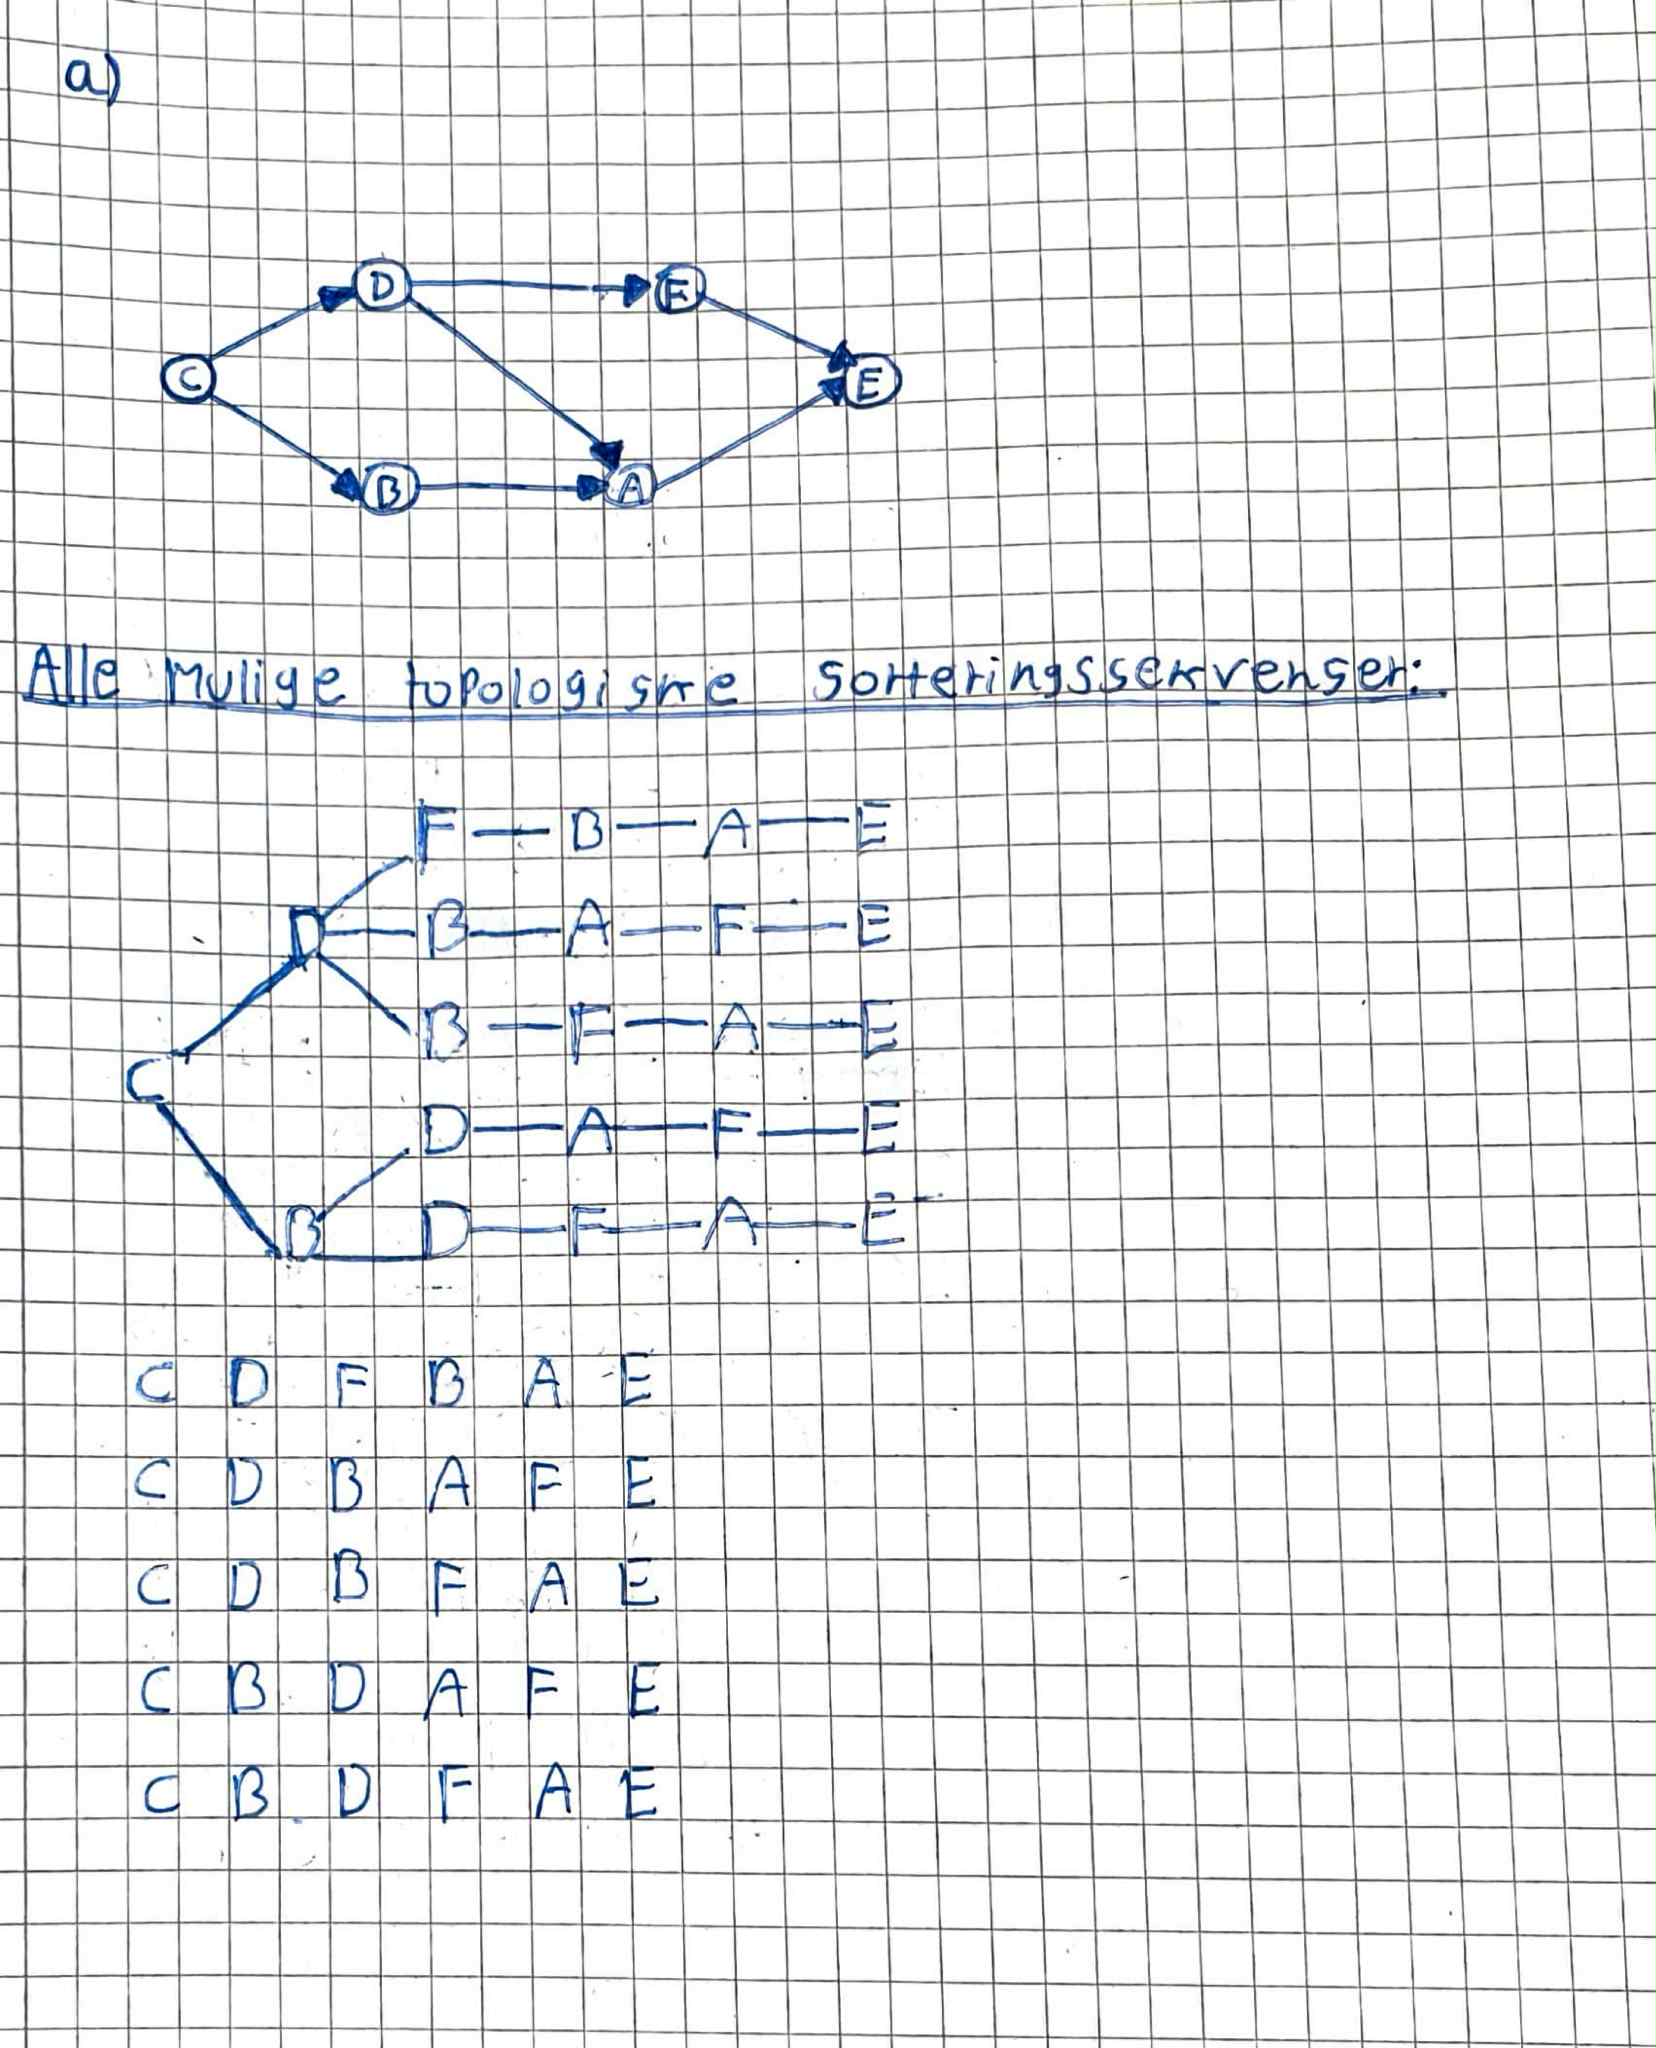 a)
D E
C E
B A
Alle mulige topologiske sorteringssekvenser:
F — B — A — E
D — B — A — F — E
B — F — A — E
C
D — A — F — E
B — D — F — A — E
C D F B A E
C D B A F E
C D B F A E
C B D A F E
C B D F A E